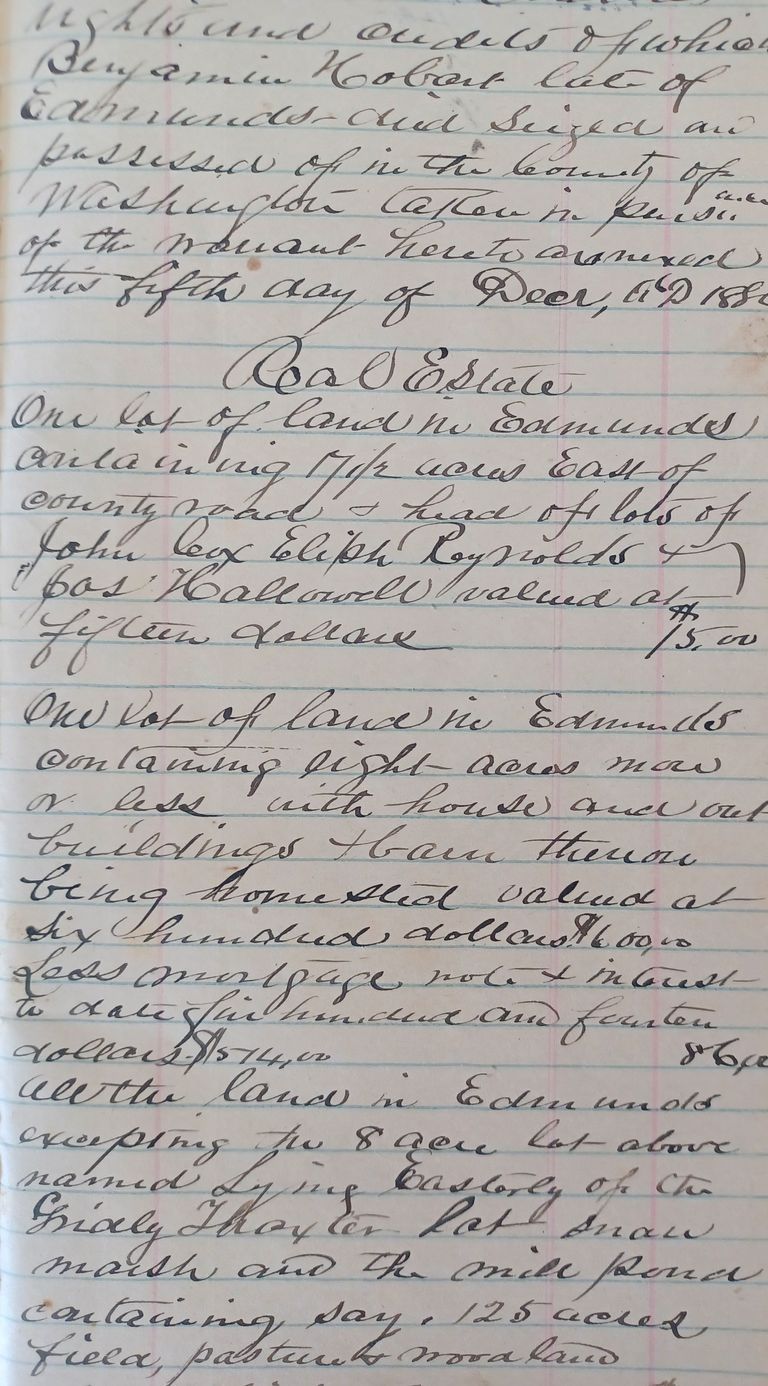 rights and credits of which
Benjamin Hobart late of
Edmunds died seized an
possessed of in the County of
Washington taken in
of the warrant hereto annexed
this fifth day of Decr, A D 188
Real Estate
One lot of land in Edmunds
containing 17 1/2 acres East of
county road & head of lots of
John Cox Eliph Reynolds &
Jas Hallowell valued at
fifteen dollars $15.00
One lot of land in Edmunds
containing eight acres more
or less with house and out
buildings & barn thereon
being homested valued at
six hundred dollars $600,00
Less mortgage note & interest
to date five hundred and fourten
dollars $514,00 86,00
All the land in Edmunds
excepting the 8 acre lot above
named Lying Easterly of the
Gridly Thaxter lot
marsh and the mill pond
containing say, 125 acres
field, pasture & woodland